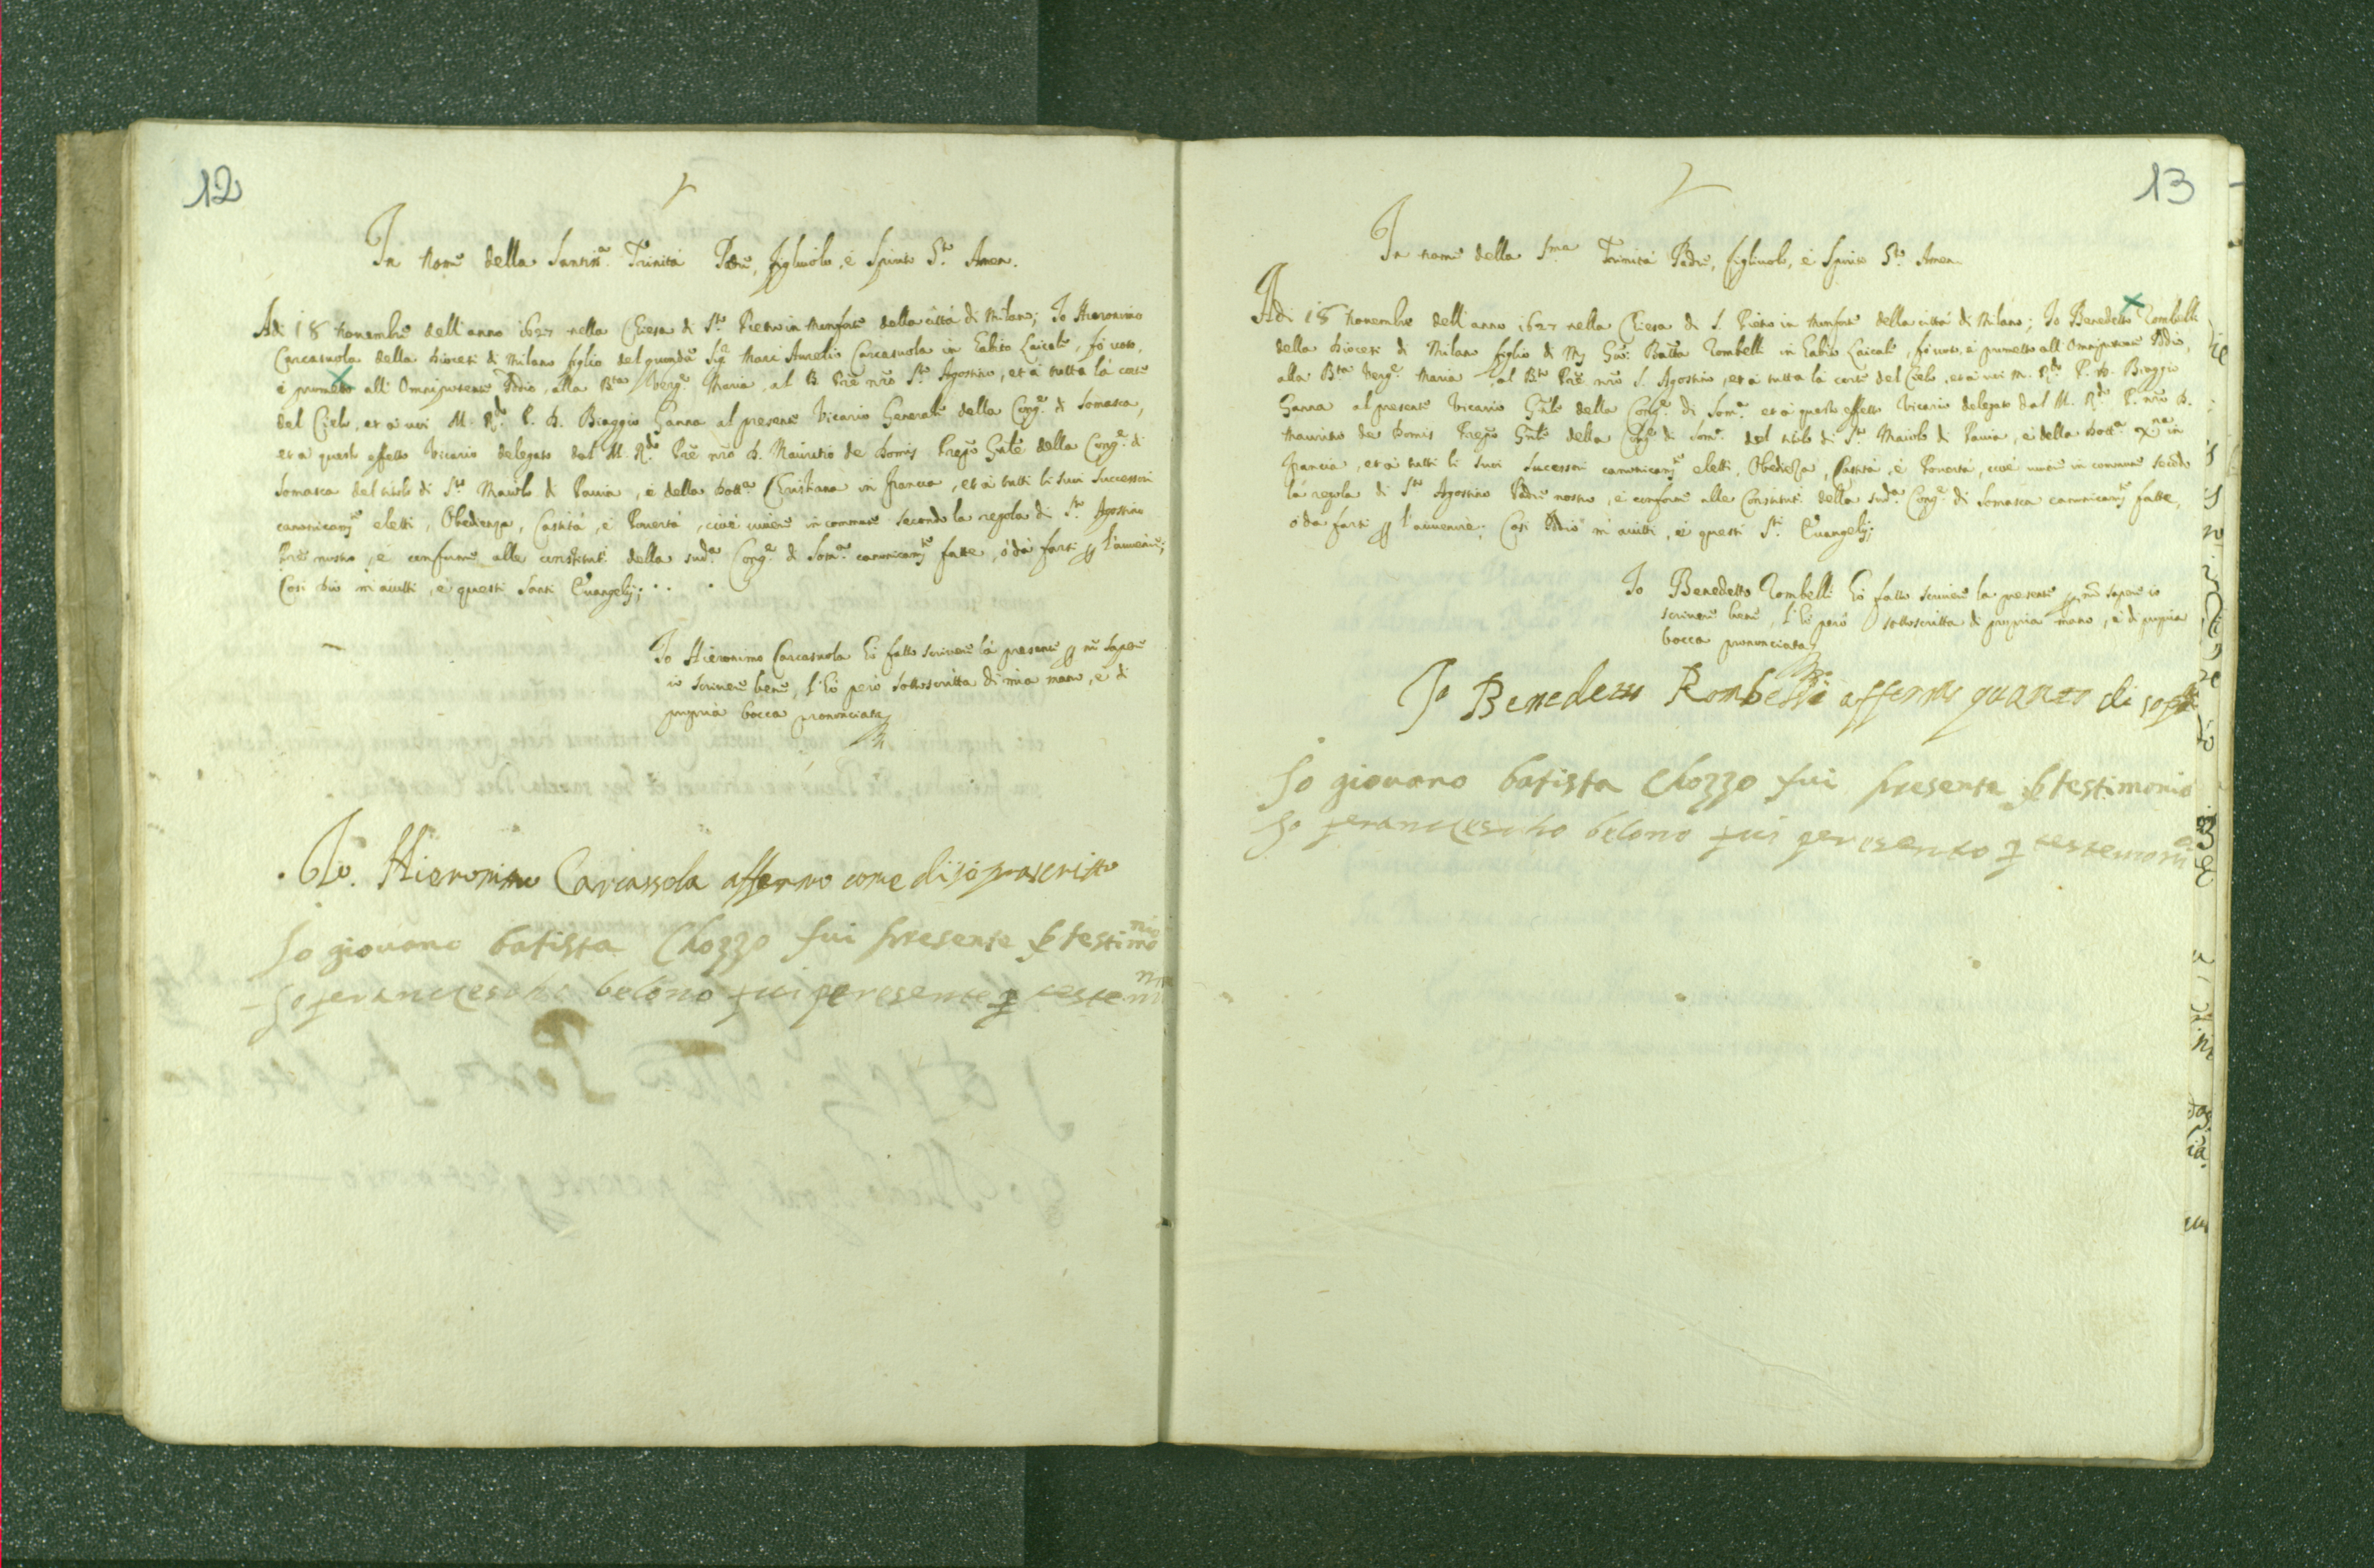 12
In Nome della Santiss.a Trinità Padre, figliuolo, è Spirito S.to Amen.
Adi 18 Nouembre dell'anno 1627 nella Chiesa di S.to Pietro in Monforte della città di Milano; Io Hieronimo
Carcasuola della Diocesi di Milano figlio del quondã Sig.r Marc'Aurelio Carcasuola in habito Laicale, fò voto,
è prometto all'Omnipotente Iddio, alla B.ta Verg.e Maria, al B. Prẽ nrõ S.to Agostino, et à tutta la corte
del Cielo, et à uoi M. R.do P. D. Biaggio Ganna al presente Vicario Generale della Cong.e di Somasca,
et à questo effetto Vicario delegato dal M. R.do Prẽ nrõ D. Mauritio de Domis Prep.o Gñle della Cong.e di
Somasca del titolo di S.to Maiolo di Pauia, è della Dott.a Christiana in francia, et à tutti li suoi Successori
canonicam.te eletti, Obedienza, Castità, è Pouertà, cioè uiuere in commune secondo la regola di S.to Agostino
Prẽ nostro, è conforme alle constitut.i della sud.a Cong.e di Som.a canonicam.te fatte, ò da farsi p l'auenire;
Cosi Dio m'aiutti, è questi Santi Euangelij;
Io Hieronimo Carcasuola hò fatto scriuere la presente p nõ sapere
io scriuere bene, l'hò però sottoscritta di mia mano, è di
propria bocca prononciata
Io. Hieronimo Carcassola affermo come di sopra scritto
Io giouano batista Chozzo fui presente p testimonio
Io ferancescho belono fui peresente p testem
13
In nome della S.ma Trinità Padre, figliuolo, è Spirito S.to Amen.
Adi 18 Nouembre dell'anno 1627 nella Chiesa di S. Pietro in Monforte della città di Milano; Io Benedetto Rombelli
della Diocesi di Milano figlio di Gio: Batta Rombelli in habito Laicale, fò voto, è prometto all'Omnipotente Iddio,
alla B.ta Verg.e Maria, al B.to Prẽ nrõ S. Agostino, et à tutta la corte del Cielo, et à uoi M. R.do P. D. Biaggio
Ganna al presente Vicario Gñle della Cong.e di Som.a et à questo effetto Vicario delegato dal M. R.do P. nrõ D.
Mauritio de Domis Prep.o Gñle della Cong.e di Som.a del titolo di S.to Maiolo di Pauia, è della Dott.a Xna in
francia, et à tutti li suoi sucessori canonicam.te eletti, Obediẽza, Castità, è Pouertà, cioè uiuere in comune secõdo
la regola di S.to Agostino Padre nostro, è conforme alle Constitut.i della sud.a Cong.e di Somasca canonicam.te fatte,
ò da farsi p l'auuenire; Cosi Iddio m'aiutti, è questi S.ti Euangelij;
Io Benedetto Rombelli hò fatto scriuere la presente p nõ sapere io
scriuere bene, l'hò però sottoscritta di propria mano, è di propria
bocca prononciata
Io Benedetto Rombelli affermo quanto di sopra
Io giouano batista Chozzo fui presente p testimonio
Io ferancescho belono fui peresento p testemoni